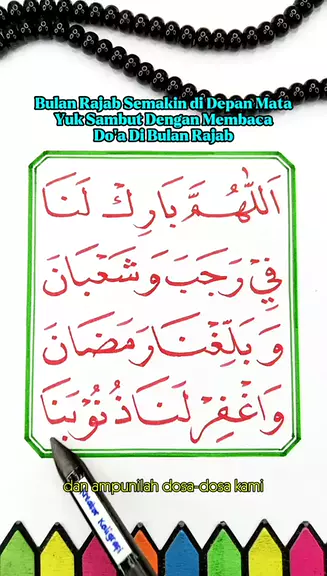 Bulan Rajab Semakin di Depan Mata
Yuk Sambut Dengan Membaca
Do'a Di Bulan Rajab
اَللّٰهُمَّ بَارِكْ لَنَا
فِيْ رَجَبَ وَشَعْبَانَ
وَبَلِّغْنَا رَمَضَانَ
وَاغْفِرْ لَنَا ذُنُوْبَنَا
dan ampunilah dosa-dosa kami